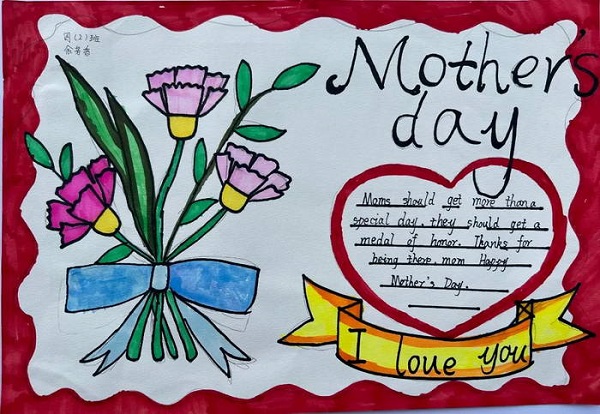 四(2)班
Mother's
day
Moms should get more than a
special day, they should get a
medal of honor. Thanks for
being there, mom Happy
Mother's Day.
I love you